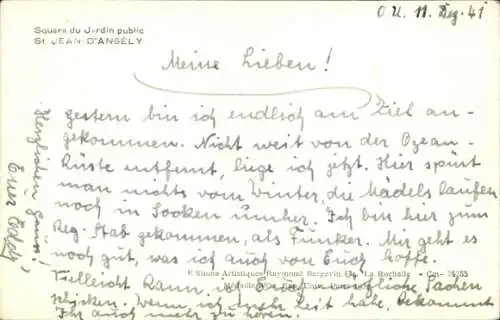 Square du Jardin public
St JEAN-D'ANGÉLY
O.U. 11. Dez. 41
Meine Lieben!
gestern bin ich endlich am Ziel an-
gekommen. Nicht weit von der Ozean-
küste entfernt, liege ich jetzt. Hier spürt
man nichts vom Winter, die Mädels laufen
noch in Socken umher. Ich bin hier zum
Reg.-Stab gekommen, als Funker. Mir geht es
noch gut, was ich auch von Euch hoffe.
Artistiques Raymond Bergevin La Rochelle
Vielleicht kann ich Euch Sachen
schicken. Wenn ich mehr Zeit habe, bekommt
Ihr auch mehr zu hören.
Herzlichen Gruss!
Euer